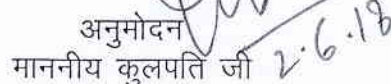 अनुमोदन
माननीय कुलपति जी 2.6.18